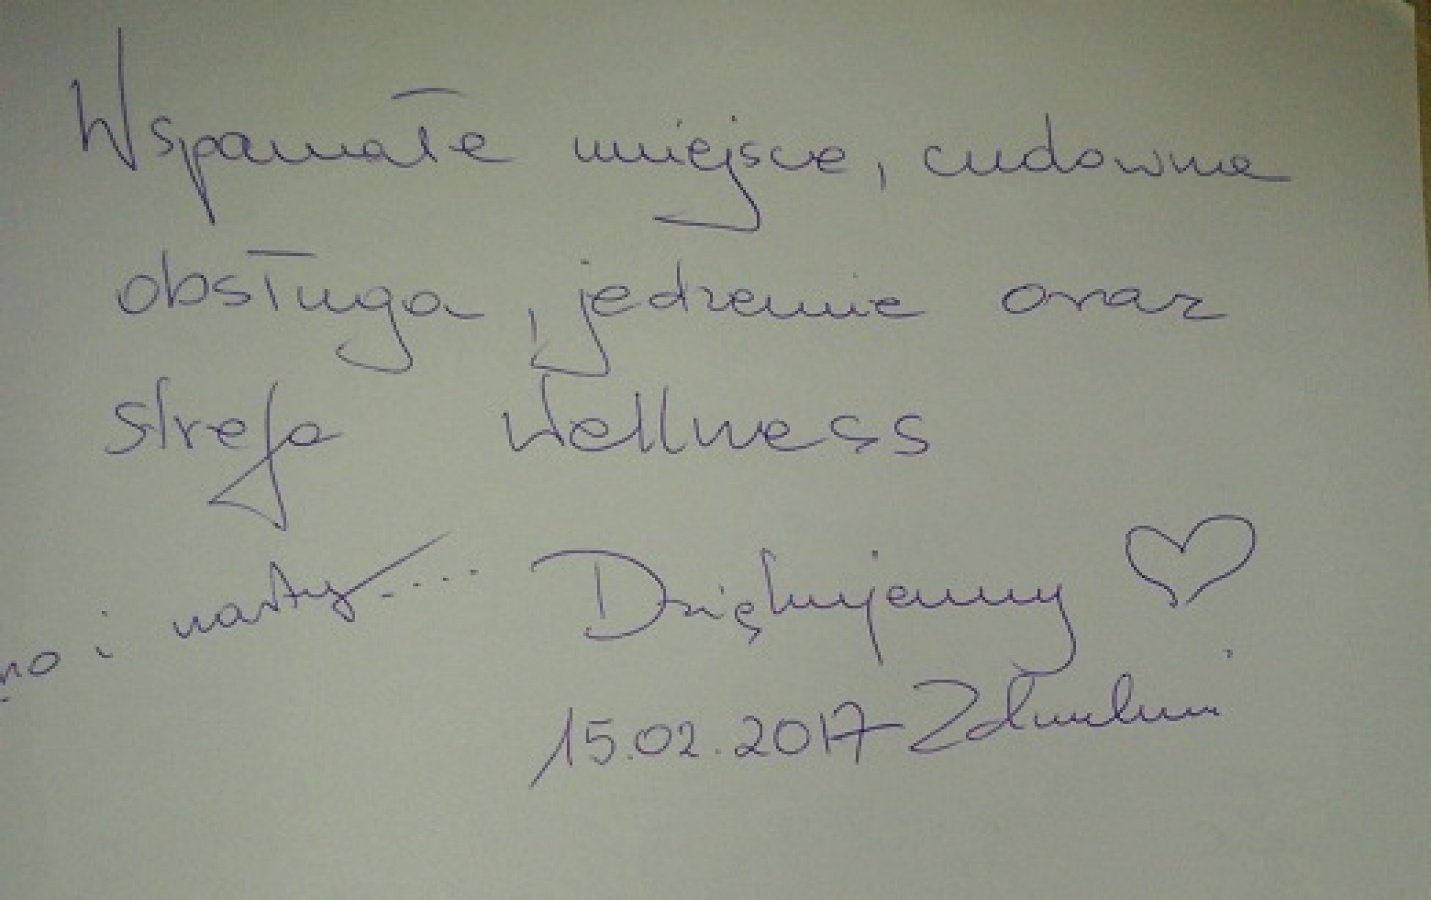 Wspaniałe miejsce, cudowna
obsługa, jedzenie oraz
strefa Wellness
no i narty.... Dziękujemy ♡
15.02.2017